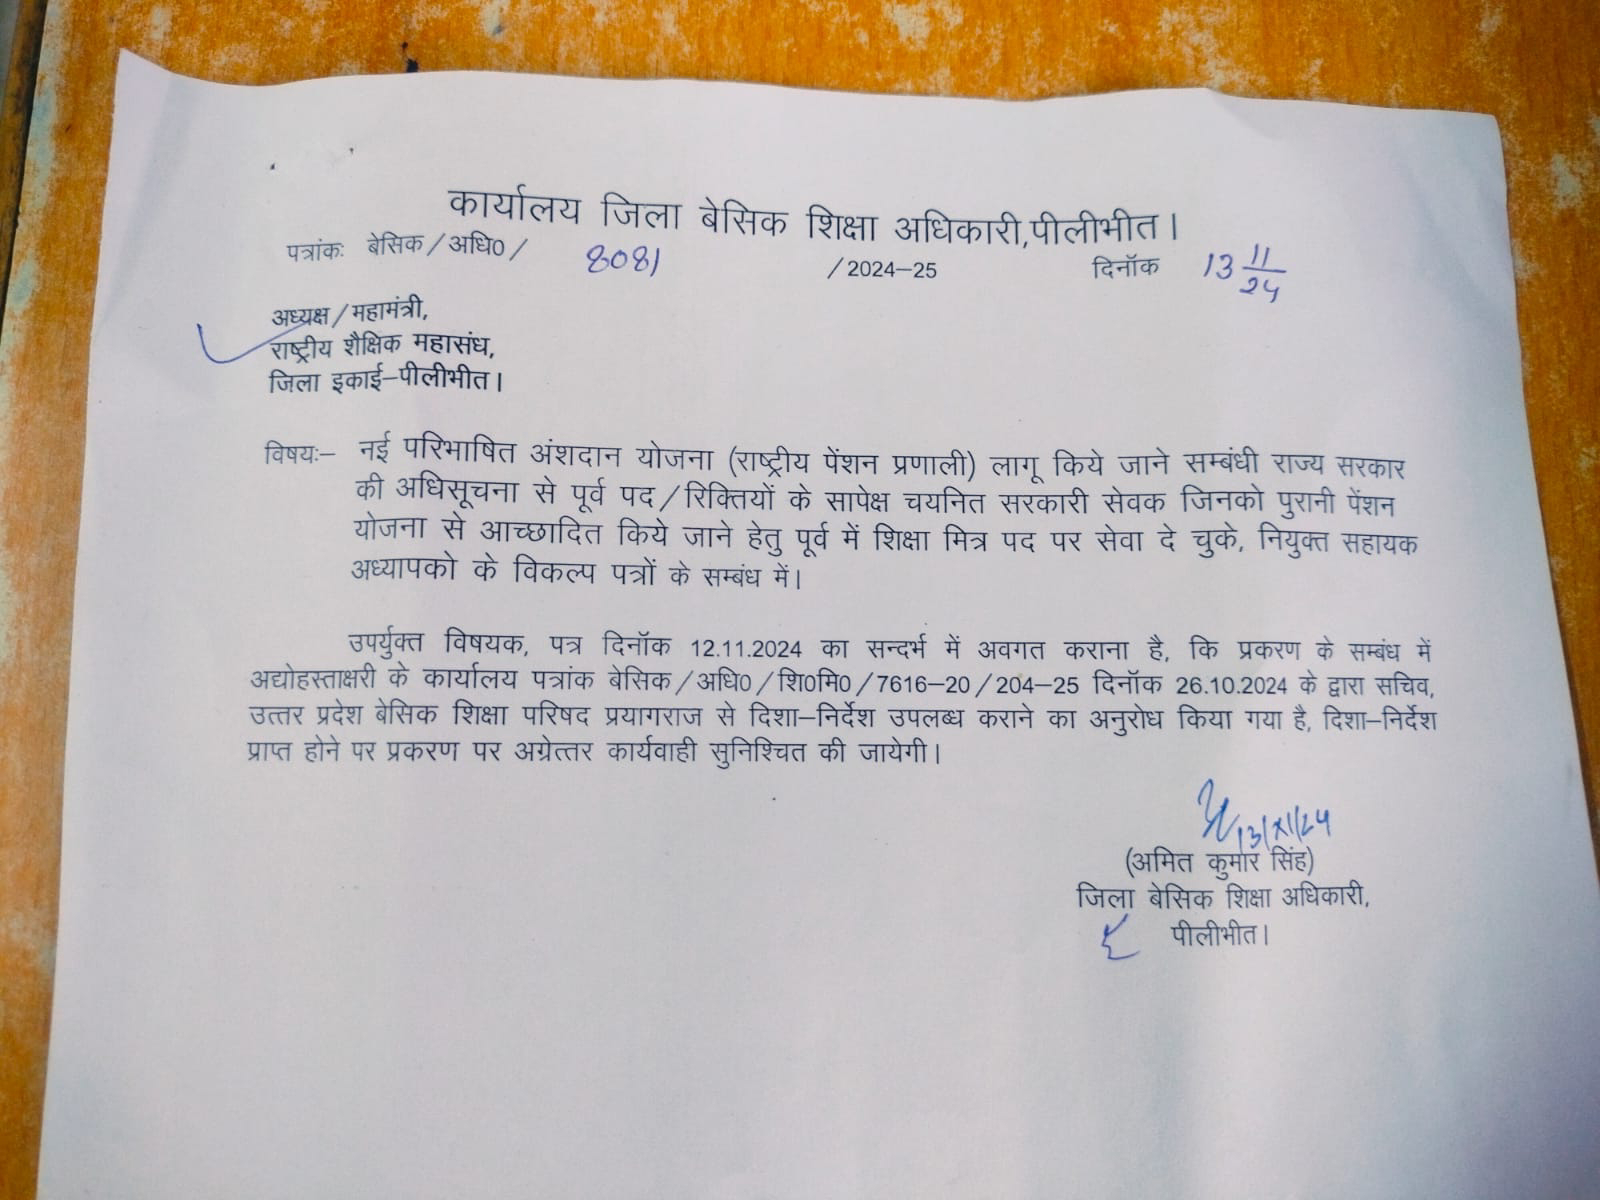 कार्यालय जिला बेसिक शिक्षा अधिकारी,पीलीभीत।
पत्रांकः बेसिक/अधि0/ 8081 /2024-25 दिनॉक 13 11/24
अध्यक्ष/महामंत्री,
राष्ट्रीय शैक्षिक महासंघ,
जिला इकाई-पीलीभीत।
विषयः- नई परिभाषित अंशदान योजना (राष्ट्रीय पेंशन प्रणाली) लागू किये जाने सम्बंधी राज्य सरकार
की अधिसूचना से पूर्व पद/रिक्तियों के सापेक्ष चयनित सरकारी सेवक जिनको पुरानी पेंशन
योजना से आच्छादित किये जाने हेतु पूर्व में शिक्षा मित्र पद पर सेवा दे चुके, नियुक्त सहायक
अध्यापको के विकल्प पत्रों के सम्बंध में।
उपर्युक्त विषयक, पत्र दिनॉक 12.11.2024 का सन्दर्भ में अवगत कराना है, कि प्रकरण के सम्बंध में
अद्योहस्ताक्षरी के कार्यालय पत्रांक बेसिक/अधि0/शि0मि0/7616-20/204-25 दिनॉक 26.10.2024 के द्वारा सचिव,
उत्तर प्रदेश बेसिक शिक्षा परिषद प्रयागराज से दिशा-निर्देश उपलब्ध कराने का अनुरोध किया गया है, दिशा-निर्देश
प्राप्त होने पर प्रकरण पर अग्रेत्तर कार्यवाही सुनिश्चित की जायेगी।
13/XI/24
(अमित कुमार सिंह)
जिला बेसिक शिक्षा अधिकारी,
पीलीभीत।